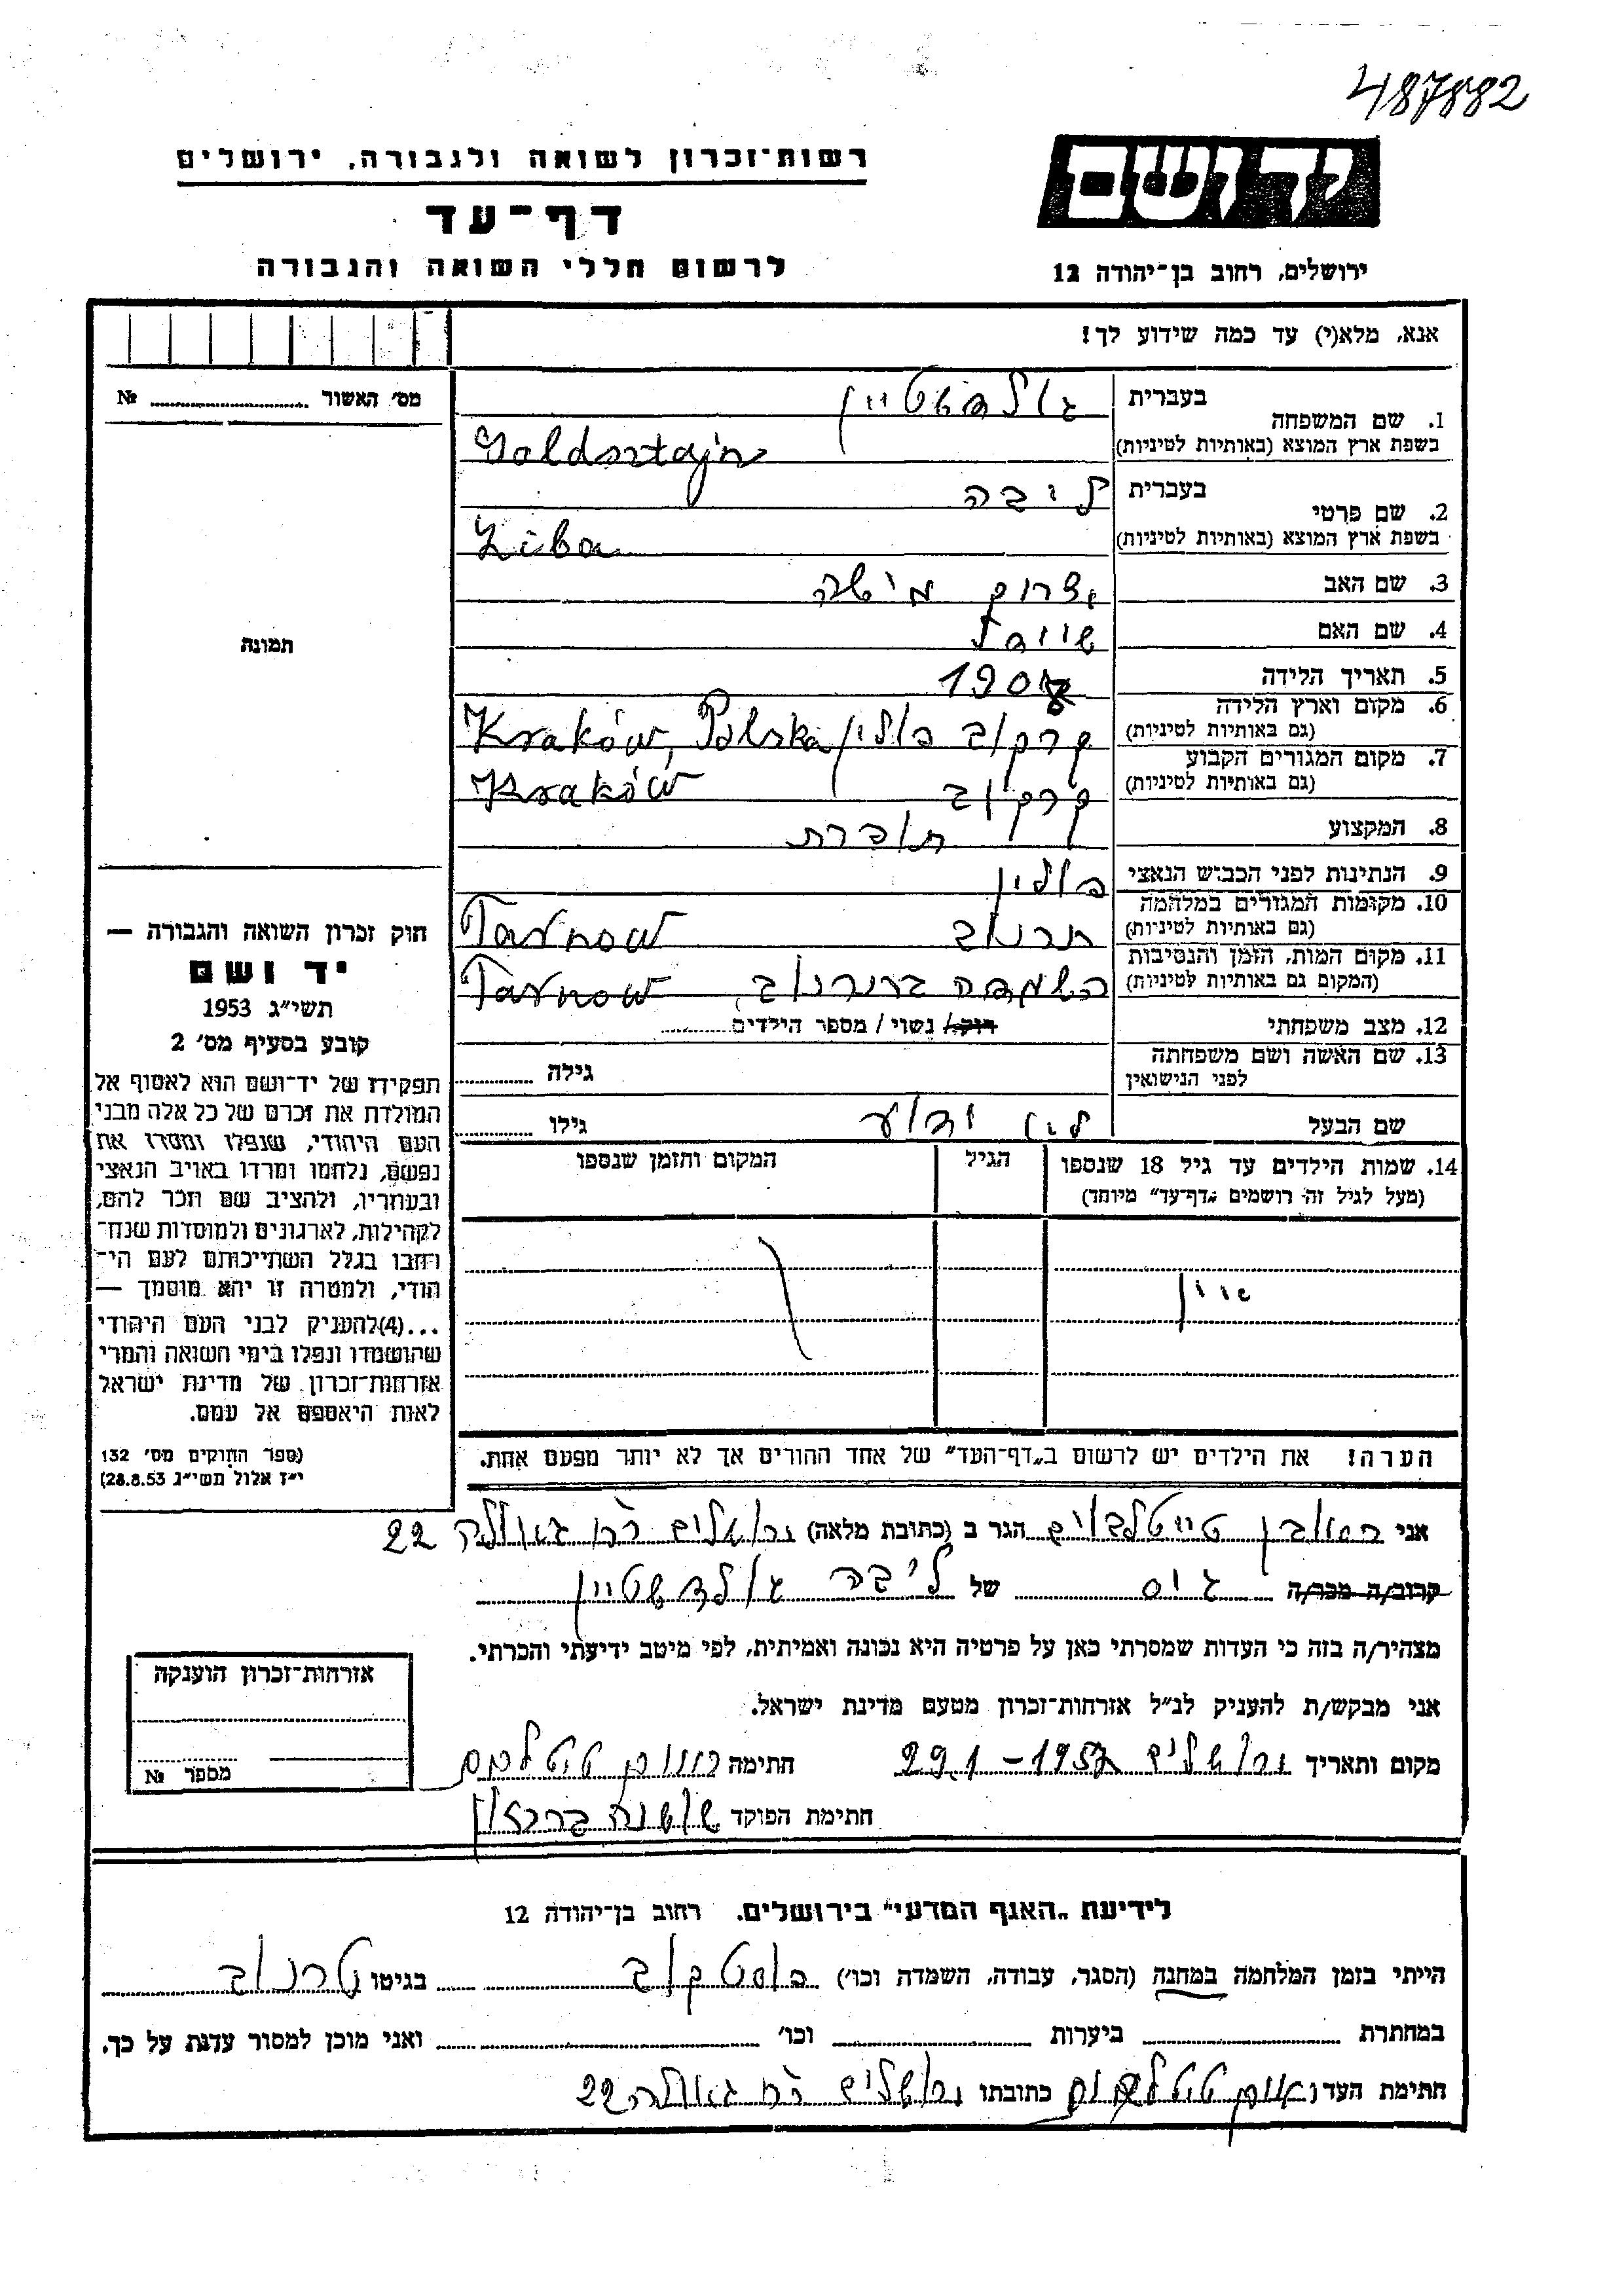 487882
רשות־זכרון לשואה ולגבורה, ירושלים
דף־עד
לרשום חללי השואה והגבורה
יד ושם
ירושלים, רחוב בן־יהודה 12
אנא, מלא(י) עד כמה שידוע לך!
מס' האשור № 
1. שם המשפחה
בעברית גולדשטיין
בשפת ארץ המוצא (באותיות לטיניות) Goldsztajn
2. שם פרטי
בעברית ליבה
בשפת ארץ המוצא (באותיות לטיניות) Liba
3. שם האב
4. שם האם
5. תאריך הלידה
6. מקום וארץ הלידה
(גם באותיות לטיניות) קרקוב פולין Kraków, Polska
7. מקום המגורים הקבוע
(גם באותיות לטיניות) קרקוב Kraków
8. המקצוע תופרת
9. הנתינות לפני הכבוש הנאצי פולין
10. מקומות המגורים במלחמה
(גם באותיות לטיניות) טרנוב Tarnow
11. מקום המות, הזמן והנסיבות
(המקום גם באותיות לטיניות) Tarnow
12. מצב משפחתי רווק/ נשוי / מספר הילדים
13. שם האשה ושם משפחתה
לפני הנישואין
גילה
שם הבעל לא ידוע גילו
14. שמות הילדים עד גיל 18 שנספו
(מעל לגיל זה רושמים „דף־עד" מיוחד)
הגיל
המקום והזמן שנספו
הערה! את הילדים יש לרשום ב„דף־העד" של אחד ההורים אך לא יותר מפעם אחת.
תמונה
חוק זכרון השואה והגבורה —
יד ושם
תשי״ג 1953
קובע בסעיף מס' 2
תפקידו של יד־ושם הוא לאסוף אל
המולדת את זכרם של כל אלה מבני
העם היהודי, שנפלו ומסרו את
נפשם, נלחמו ומרדו באויב הנאצי
ובעוזריו, ולהציב שם וזכר להם,
לקהילות, לארגונים ולמוסדות שנח־
רבו בגלל השתייכותם לעם הי־
הודי, ולמטרה זו יהא מוסמך —
...(4) להעניק לבני העם היהודי
שהושמדו ונפלו בימי השואה והמרי
אזרחות־זכרון של מדינת ישראל
לאות היאספם אל עמם.
(ספר החוקים מס' 132
י״ז אלול תשי״ג 28.8.53)
אני ראובן טייטלבוים הגר ב (כתובת מלאה) ירושלים רח' גאולה 22
קרוב/ה מכר/ה גיס של ליבה גולדשטיין
מצהיר/ה בזה כי העדות שמסרתי כאן על פרטיה היא נכונה ואמיתית, לפי מיטב ידיעתי והכרתי.
אני מבקש/ת להעניק לנ״ל אזרחות־זכרון מטעם מדינת ישראל.
מקום ותאריך ירושלים 29.1-1957 חתימה ראובן טיטלבוים
חתימת הפוקד
אזרחות־זכרון הוענקה
מספר №
לידיעת „האגף המדעי" בירושלים. רחוב בן־יהודה 12
הייתי בזמן המלחמה במחנה (הסגר, עבודה, השמדה וכו') פוסטקוב בגיטו טרנוב
במחתרת ביערות וכו' ואני מוכן למסור עדות על כך.
חתימת העד ראובן טיטלבוים כתובתו ירושלים רח' גאולה 22